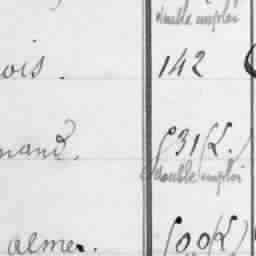 double emploi
ois. 142
nand. 531(2.)
double emploi
almer. 500(2)